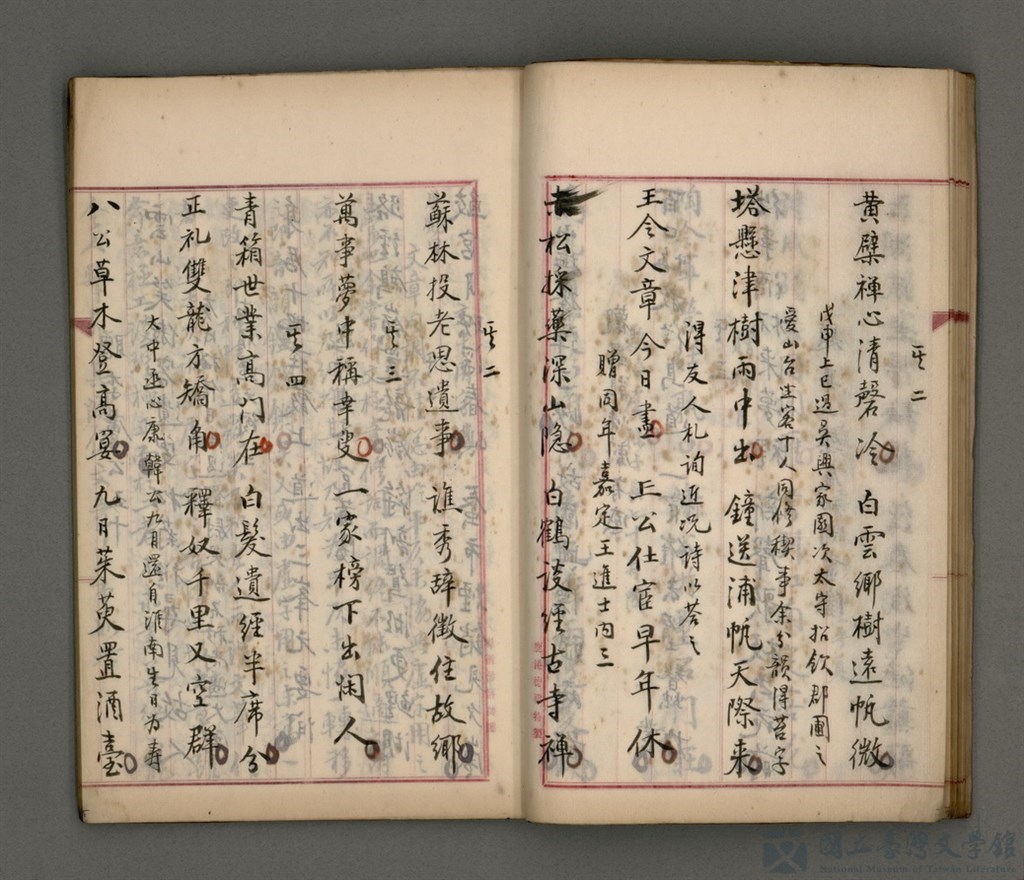 其二
黄檗禅心清磬冷 白雲鄉樹遠帆微
戊申上巳過吳興家園次太守招飲郡圃之
愛山台坐客十人同修禊事余分韻得苔字
塔懸津樹雨中出 鐘送浦帆天際来
得友人札詢近况詩以荅之
王令文章今日盡 上公仕宦早年休
贈同年嘉定王進士内三
去松採藥深山隐 白鶴談經古寺禅
其二
蘇林投老思遺事 譙秀辞徴住故鄉
其三
萬事夢中稱幸叟 一家榜下出闲人
其四
青箱世業高门在 白髪遺經半席分
正礼雙龍方矯角 釋奴千里又空群
大中丞心康韓公九月還自淮南生日为寿
八公草木登高宴 九日茱萸置酒臺
國立臺灣文學館
National Museum of Taiwan Literature